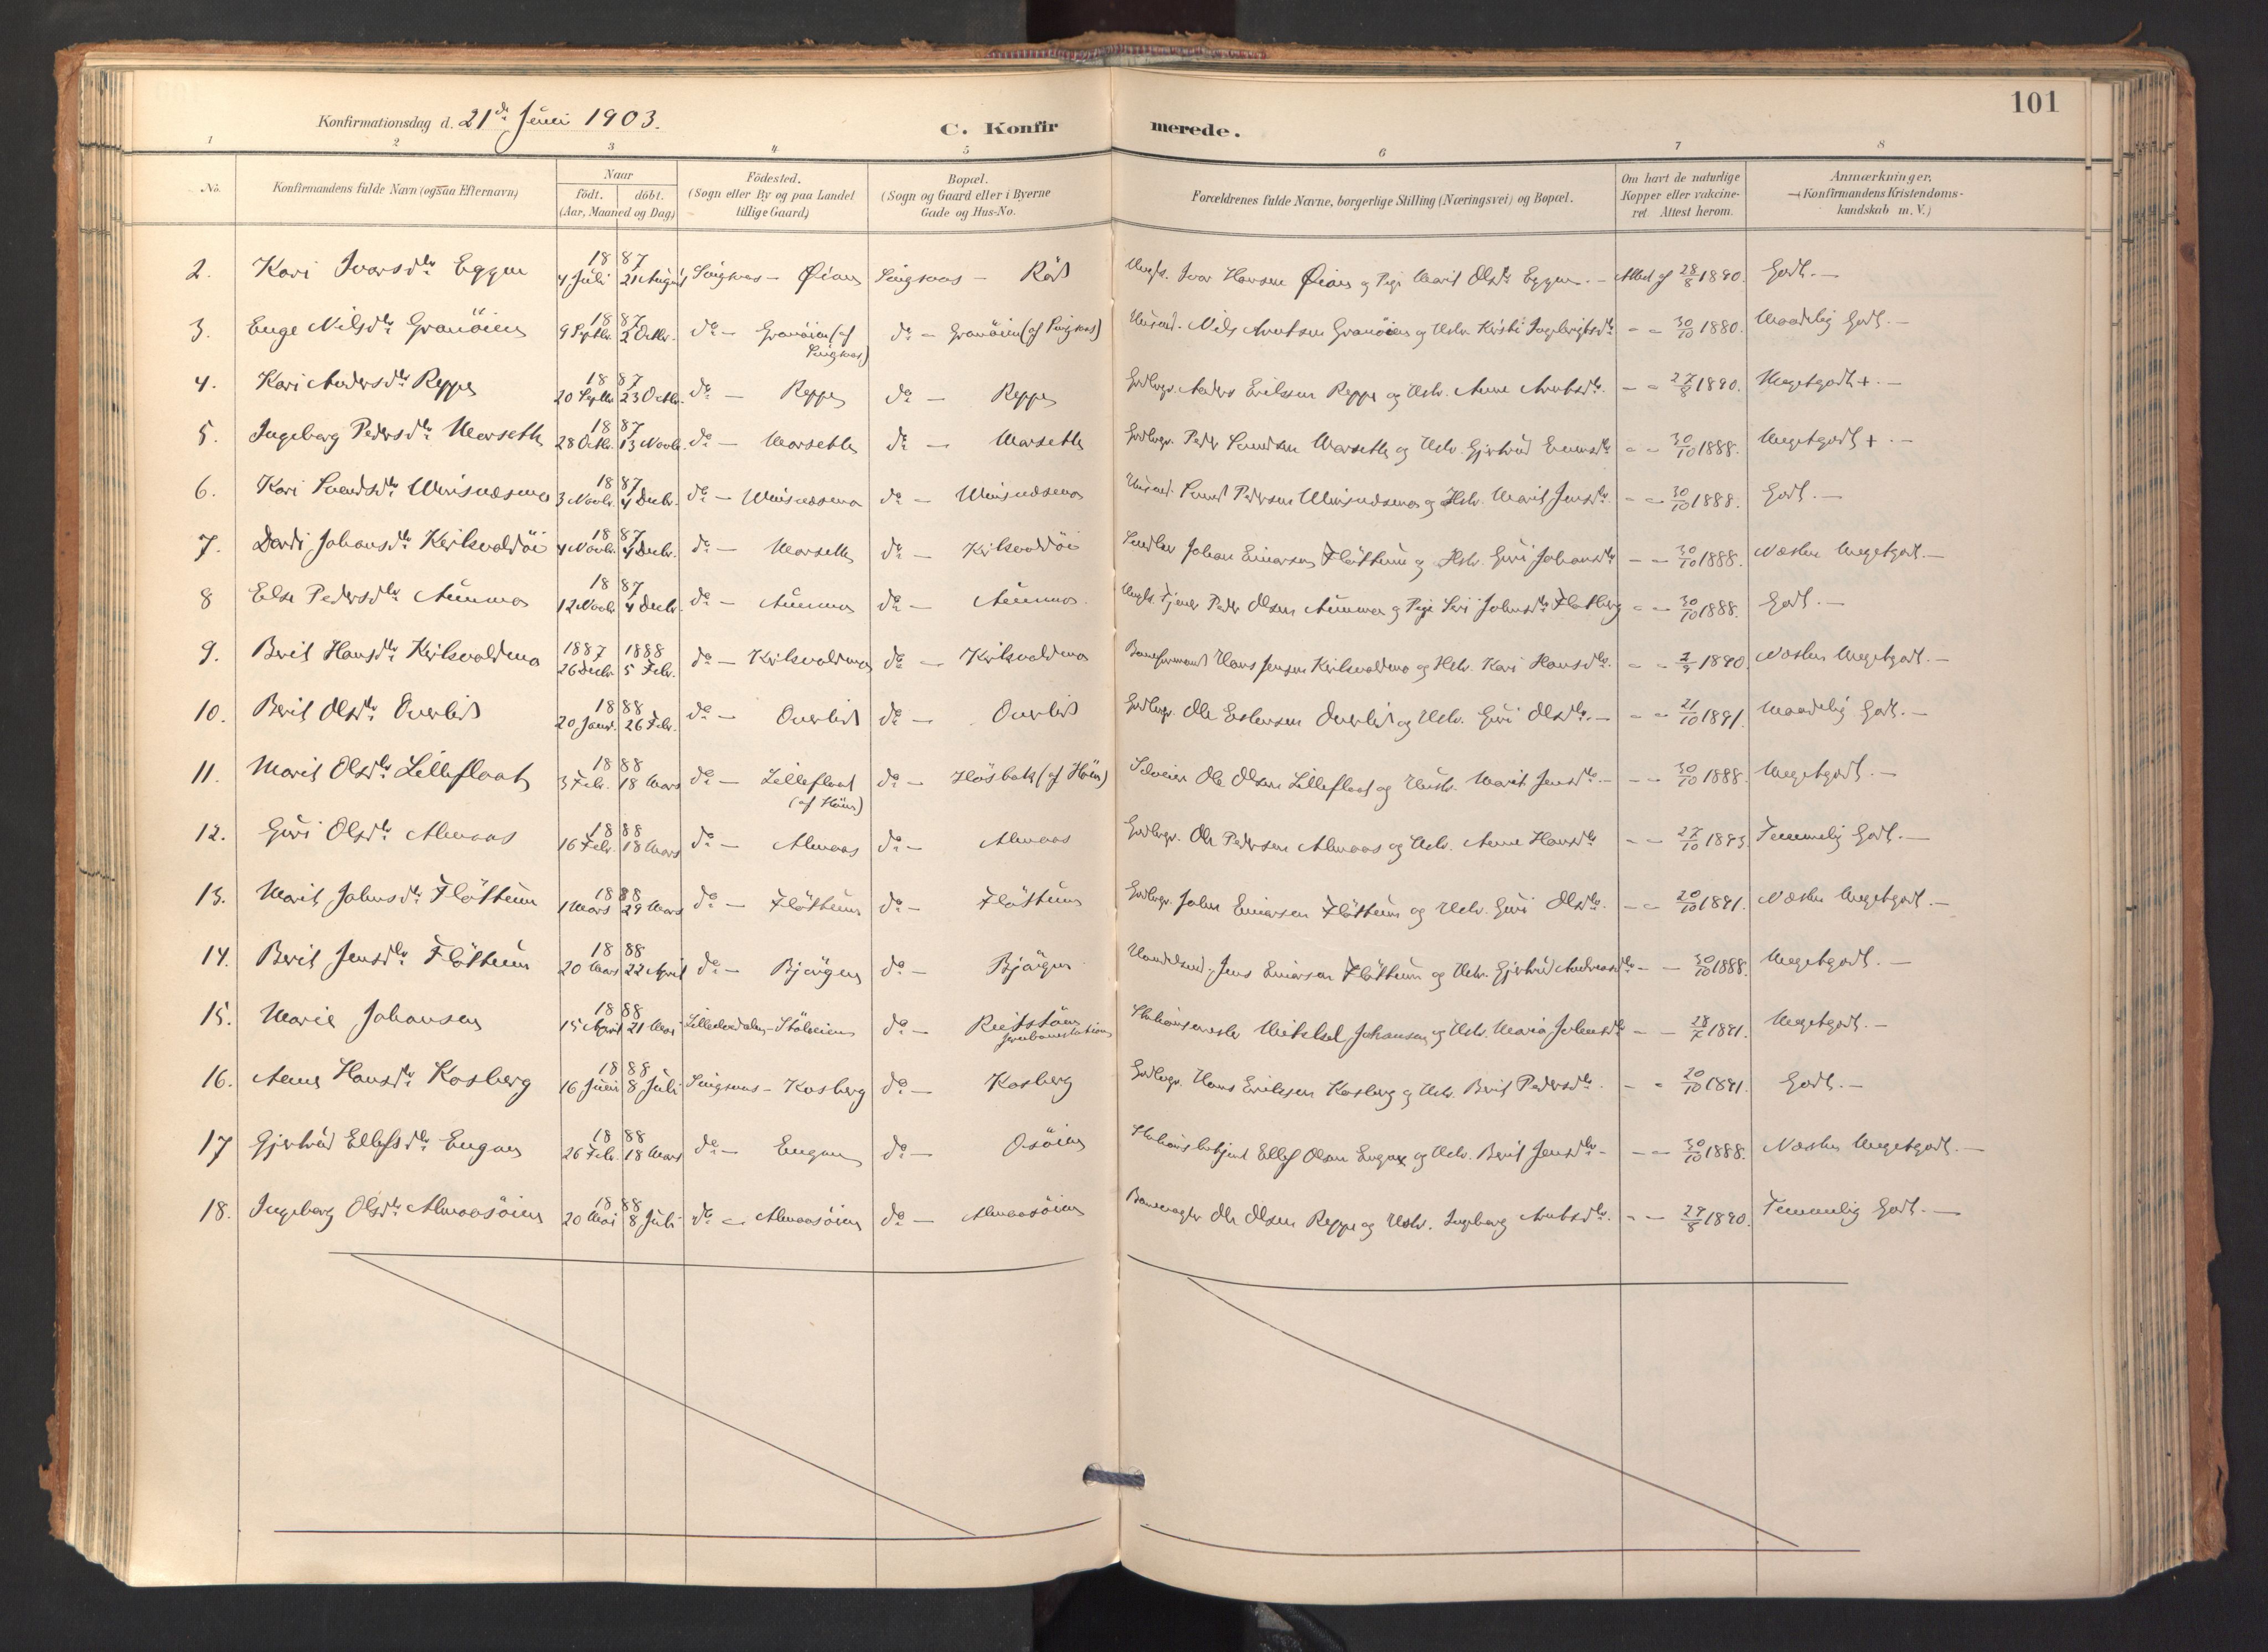 101
Konfirmationsdag d. 21de Juni 1903.
C. Konfirmerede.
1 2 3 4 5 6 7 8
No. Konfirmandens fulde Navn (ogsaa Efternavn) Naar födt. döbt. (Aar, Maaned og Dag) Födested. (Sogn eller By og paa Landet tillige Gaard) Bopæl. (Sogn og Gaard eller i Byerne Gade og Hus-No. Forældrenes fulde Navne, borgerlige Stilling (Næringsvei) og Bopæl. Om havt de naturlige Kopper eller vakcineret. Attest herom. Anmærkninger. (Konfirmandens Kristendomskundskab m. V.)
2. Kari Ivarsdtr Eggen 1887 4 Juli 21 August Singsaas — Øien Singsaas — Röd Ungk. Ivar Hansen Øien og Pige Marit Olsdtr Eggen. — Attest af 28/8 1890. Godt. —
3. Enge Nilsdtr Granöien 1887 9 Septbr. 2 Octbr. do — Granöien (af Singsaas) do — Granöien (af Singsaas) Nils Arntsen Granöien og Hstr. Kirsti Ingebrigtsdtr — — 30/10 1880. Maadelig Godt. —
4. Kari Andersdtr Reppe 1887 20 Septbr 23 Octbr. do — Reppe do — Reppe Gaardbrgr. Anders Eriksen Reppe og Hstr. Anne Arntsdtr. — — 27/8 1890. Megetgodt +. —
5. Ingeborg Pedersdtr Morseth 1887 28 Octbr. 13 Novbr. do — Morseth do — Morseth Gaardbrgr. Peder Morseth og Hstr. Gjertrud — — 30/10 1888. Megetgodt +. —
6. Kari 1887 3 Novbr. 4 Decbr. do — do — Pedersen og Hstr. Marit Jensdtr. — — 30/10 1888. Godt. —
7. Dordi Johansdtr Kjelsvoldöi 1887 4 Novbr. 4 Decbr. do — Morseth do — Kjelsvoldöi Johan Einarsen Flöttum og Hstr. Guri Johansdtr — — 30/10 1888. Næsten Megetgodt. —
8 Else Pedersdtr Aunmo 1887 12 Novbr. 4 Decbr. do — Aunmo do — Aunmo. Ungk. Tjener Peder Olsen Aunmo og Pige Johnsdtr Flatberg — — 30/10 1888. Godt. —
9. Berit Hansdtr Kjelsvoldmo 1887 1888 26 Decbr 5 Febr. do — Kjelsvoldmo do — Kjelsvoldmo Baneformand Hans Jensen Kjelsvoldmo og Hstr. Kari Hansdtr. — — 1890. Næsten Megetgodt. —
10. Berit Olsdtr Overlid 1888 20 Janr. 26 Febr. do — Overlid do — Overlid Gaardbrgr. Ole Estensen Overlid og Hstr. Guri Olsdtr. — — — 21/10 1891. Maadelig Godt. —
11. Marit Olsdtr Lilleflaat 1888 3 Febr. 18 Mars do — Lilleflaat (af Höin) do — Höisbak (af Höin) Selveier Ole Olsen Lilleflaat og Hustr. Marit Jensdtr. — — — 30/10 1888. Megetgodt. —
12. Guri Olsdtr Almaas 1888 16 Febr. 18 Mars do — Almaas do — Almaas Gaardbrgr. Ole Pedersen Almaas og Hstr. Anne Hansdtr — — 27/10 1893 Temmelig Godt. —
13. Marit Johnsdtr Flöttum 1888 1 Mars 29 Mars do — Flöttum do — Flöttum Gaardbrgr. John Einarsen Flöttum og Hstr. Guri Olsdtr. — — 20/10 1891. Næsten Megetgodt. —
14. Berit Jensdtr Flöttum 1888 20 Mars 22 April do — Bjørgen do — Bjørgen Handelsmd. Jens Einarsen Flöttum og Hstr. Gjertrud Andreasdtr — — 30/10 1888. Megetgodt. —
15. Marie Johansen 1888 15 April 21 Mai Lilleelvedalen — Stöleien do — Reitstöen Jernbanestation Stationsmester Johansen og Hstr. Maria Johnsdtr — — 1891. Megetgodt. —
16. Anne Hansdtr Kosberg 1888 16 Juni 8 Juli Singsaas — Kosberg do — Kosberg Gaardbrgr. Hans Eriksen Kosberg og Hstr. Berit Pedersdtr. — — 20/10 1891. Godt. —
17 Gjertrud Ellefsdtr Engan 1888 26 Febr. 18 Mars do — Engan do — Osöien Stationsbetjent Ellef Olsen Engan og Hstr. Berit Jensdtr — — — 30/10 1888. Næsten Megetgodt. —
18. Ingeborg Olsdtr Almaasöien 1888 20 Mai 8 Juli do — Almaasöien do — Almaasöien Banevogter Ole Olsen Reppe og Hstr. Ingeborg Arntsdtr. — — 1890. Temmelig Godt. —